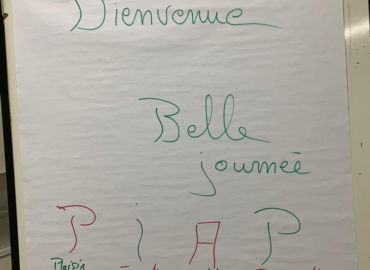 Bienvenue
Belle
journée
P i A P
Plaisir